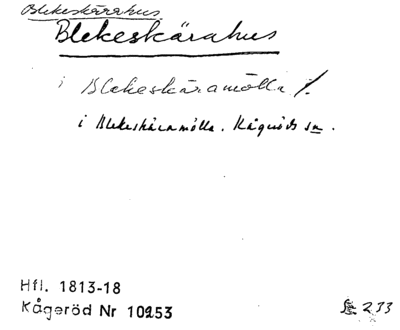 Blekeskärahus
Blekeskärahus
i Blekeskäramölla /.
i Blekeskäramölla. Kågeröds sn.
Hfl. 1813-18
Kågeröd Nr 10253
233